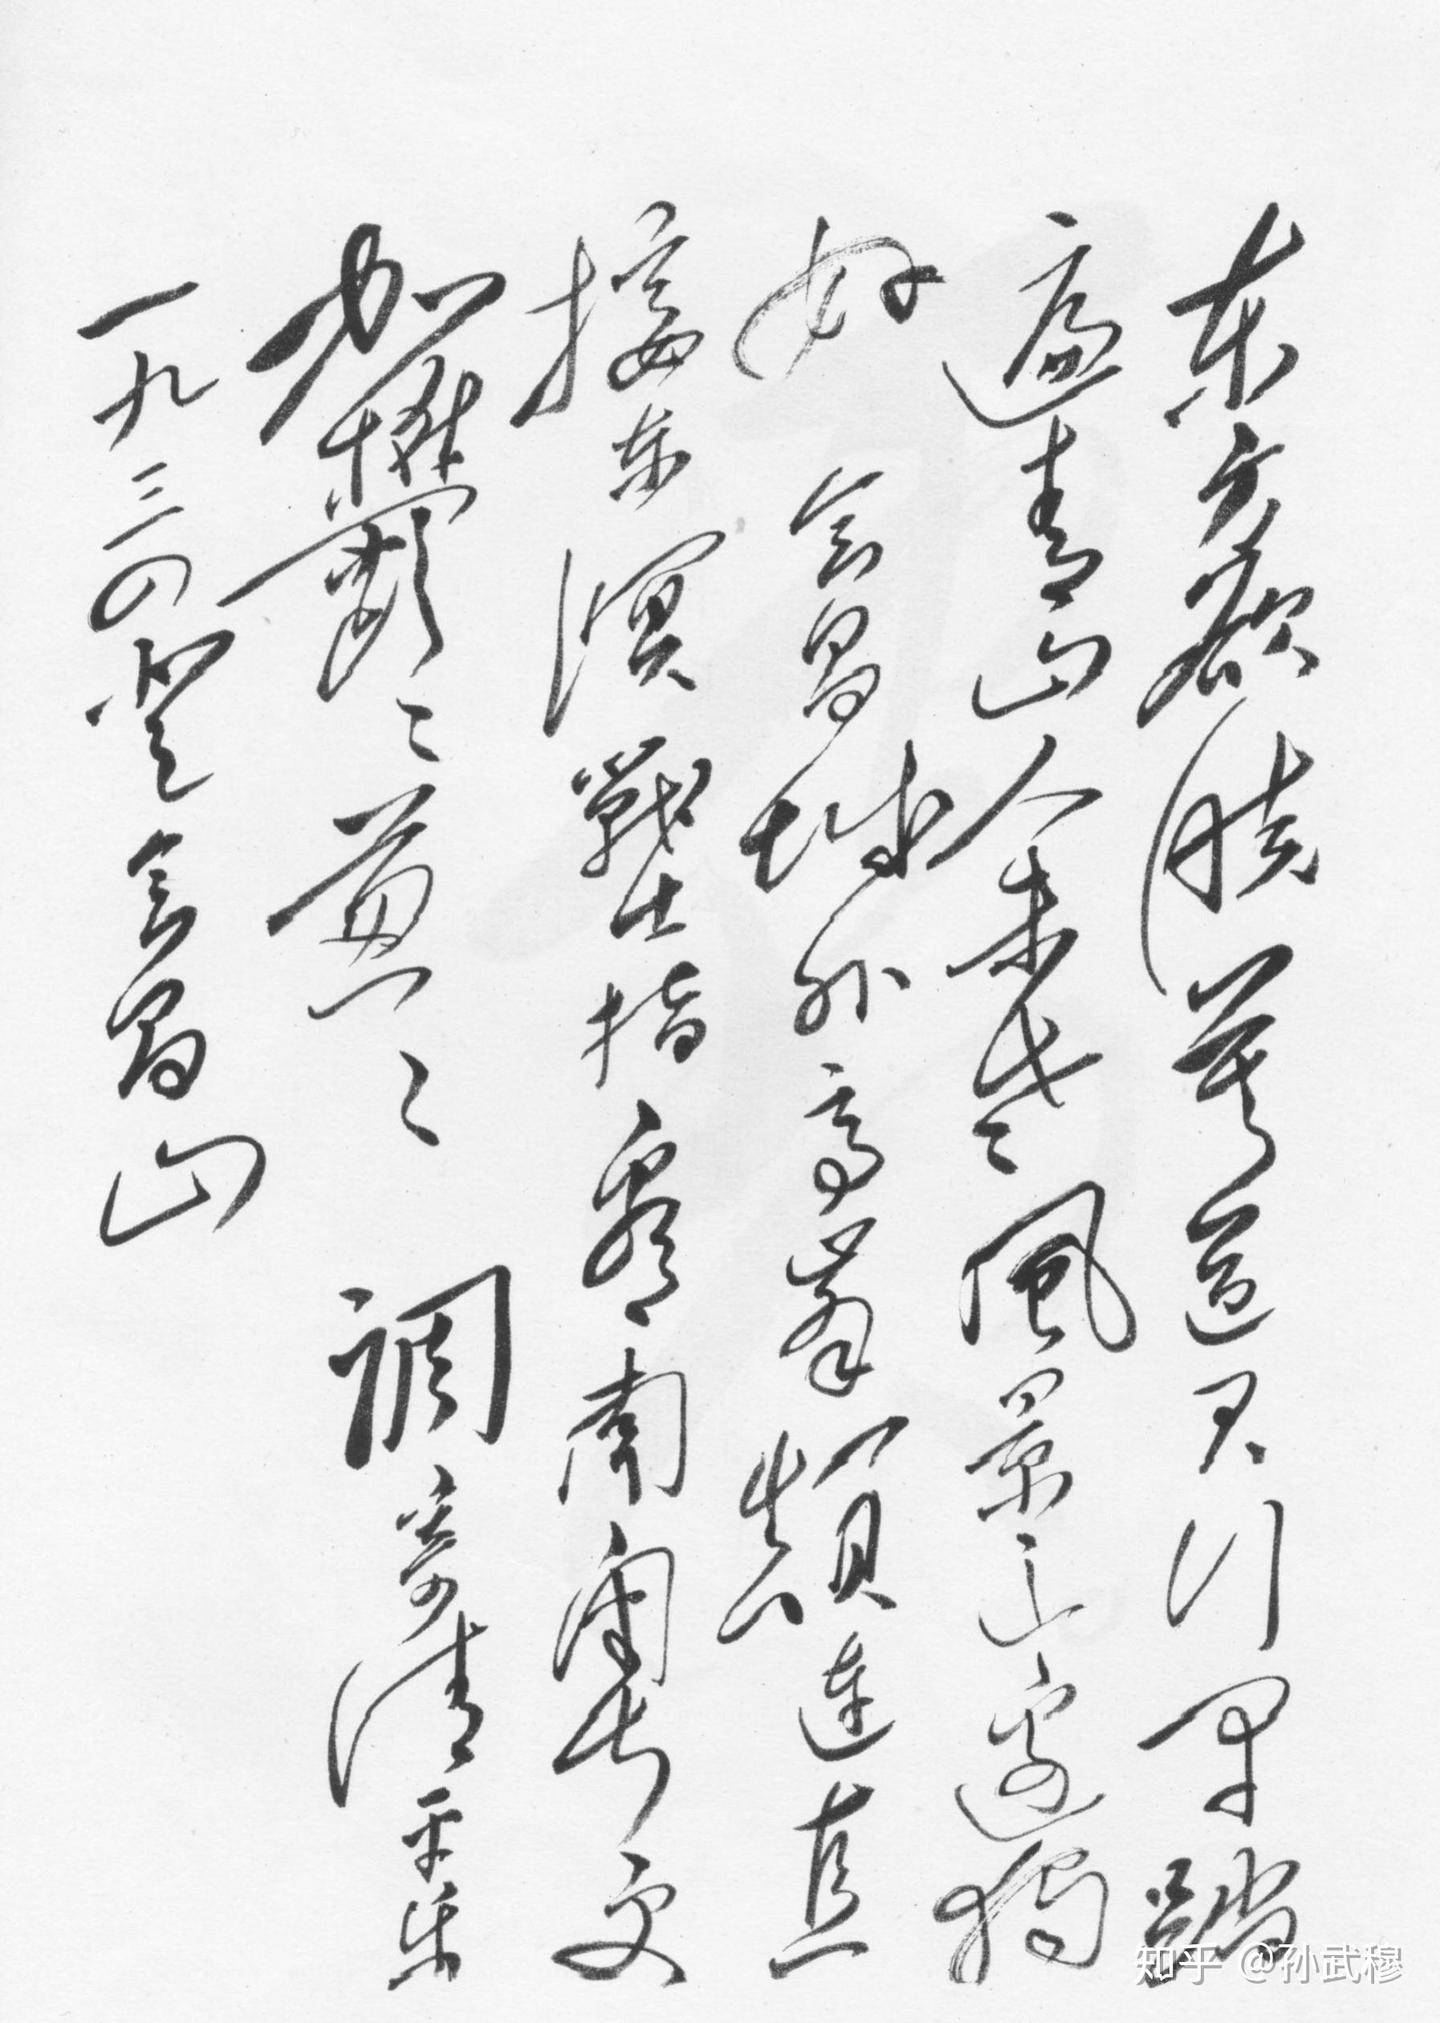 东方欲晓莫道君行早踏
遍青山人未老風景这边獨
好 会昌城外高峯顛連直
接东溟戰士指看南粤更
加鬱〻葱〻 調寄清平乐
一九三四登会昌山
知乎 @孙武穆